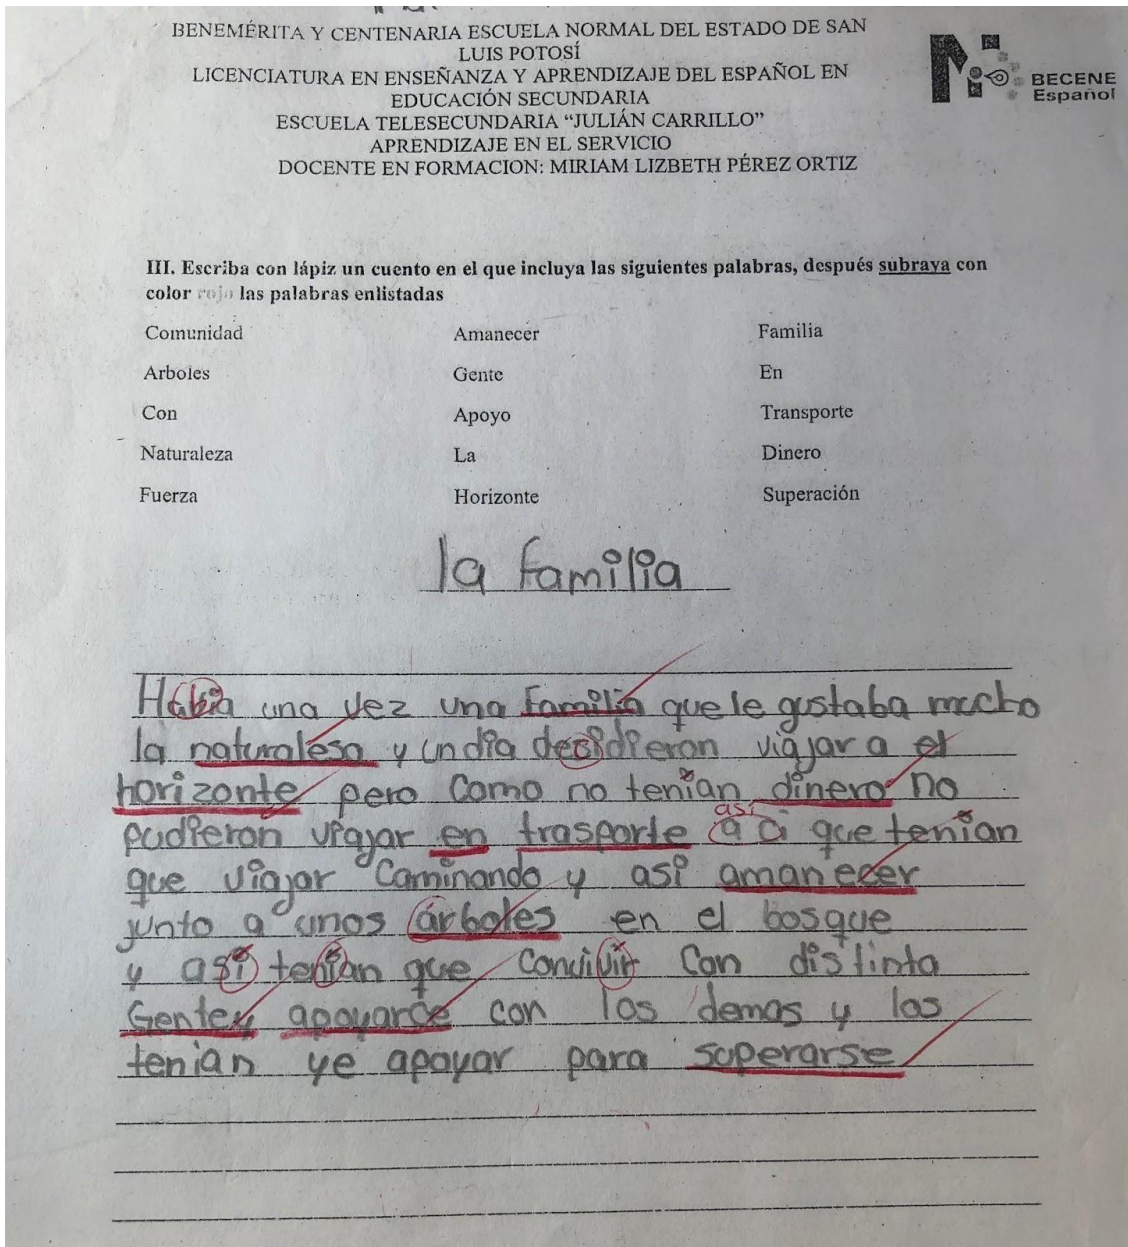 BENEMÉRITA Y CENTENARIA ESCUELA NORMAL DEL ESTADO DE SAN
LUIS POTOSÍ
LICENCIATURA EN ENSEÑANZA Y APRENDIZAJE DEL ESPAÑOL EN
EDUCACIÓN SECUNDARIA
ESCUELA TELESECUNDARIA “JULIÁN CARRILLO”
APRENDIZAJE EN EL SERVICIO
DOCENTE EN FORMACION: MIRIAM LIZBETH PÉREZ ORTIZ
BECENE
Español
III. Escriba con lápiz un cuento en el que incluya las siguientes palabras, después subraya con
color rojo las palabras enlistadas
Comunidad Amanecer Familia
Arboles Gente En
Con Apoyo Transporte
Naturaleza La Dinero
Fuerza Horizonte Superación
la familia
Habia una vez una familia que le gustaba mucho
la naturalesa y un dia decidieron viajar a el
horizonte pero como no tenían dinero no
así
pudieron viajar en trasporte a ci que tenían
que viajar caminando y asi amanecer
junto a unos árboles en el bosque
y así tenían que convivir con distinta
Gente y apoyarce con los demas y los
tenian ye apoyar para superarse